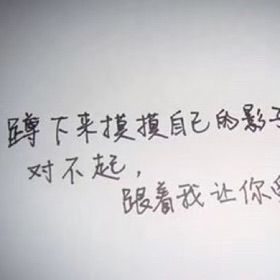 蹲下来摸摸自己的影子
对不起，
跟着我让你